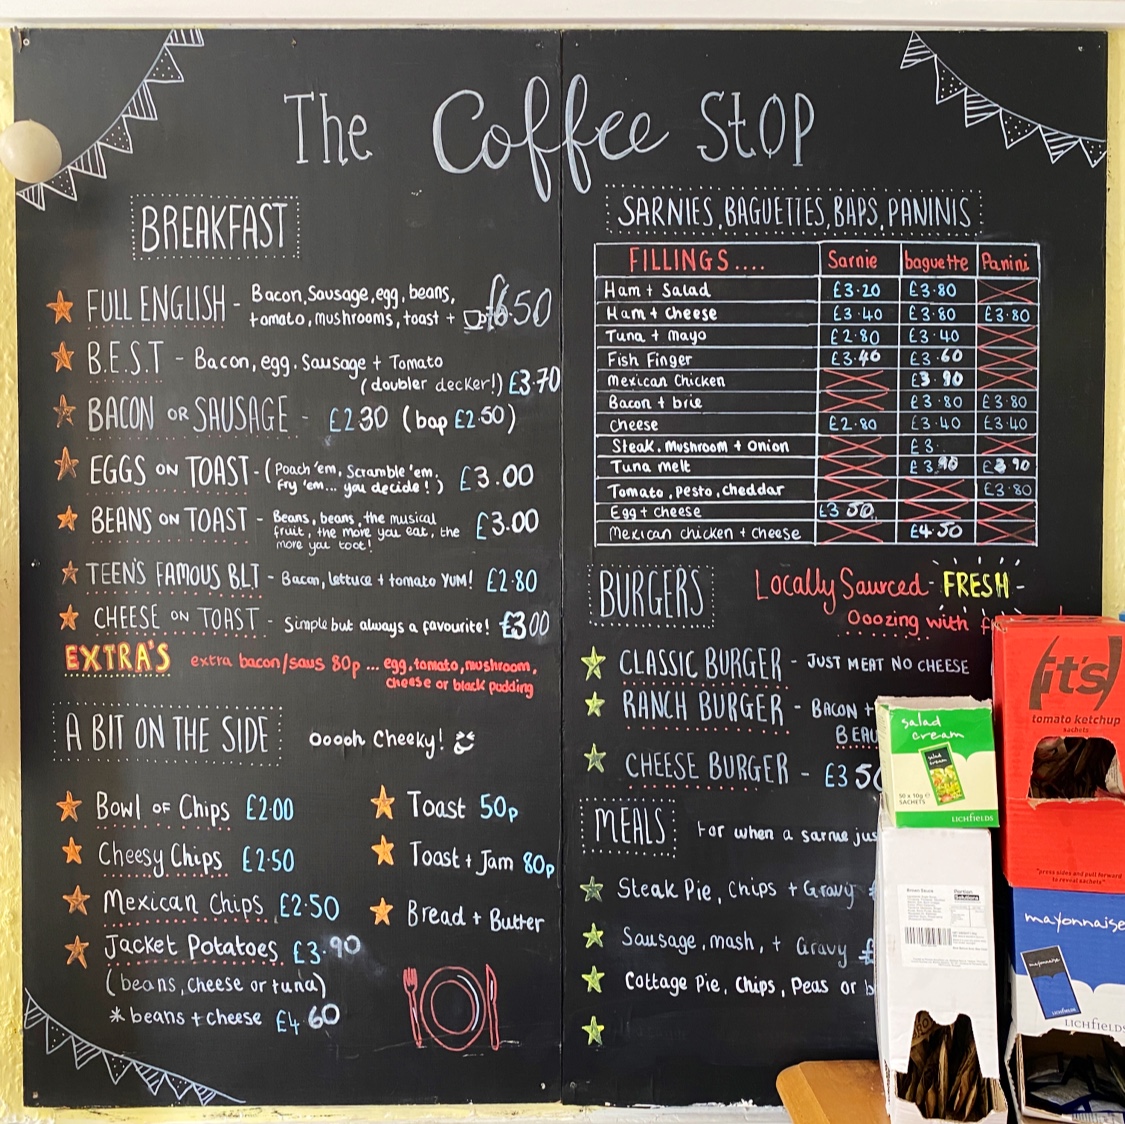 The Coffee Stop
BREAKFAST
FULL ENGLISH - Bacon, Sausage, egg, beans,
tomato, mushrooms, toast + £6.50
B.E.S.T - Bacon, egg. Sausage + Tomato
(doubler decker!) £3.70
BACON OR SAUSAGE - £2.30 (bap £2.50)
EGGS ON TOAST - (Poach 'em, Scramble 'em,
fry 'em... you decide!) £3.00
BEANS ON TOAST - Beans, beans, the musical
fruit, the more you eat, the
more you toot! £3.00
TEEN'S FAMOUS BLT - Bacon, lettuce + tomato YUM! £2.80
CHEESE ON TOAST - Simple but always a favourite! £3.00
EXTRA'S extra bacon/saus 80p ... egg, tomato, mushroom,
cheese or black pudding
A BIT ON THE SIDE Ooooh Cheeky!
Bowl OF Chips £2.00
Cheesy Chips £2.50
Mexican Chips £2.50
Jacket Potatoes £3.90
(beans, cheese or tuna)
* beans + cheese £4.60
Toast 50p
Toast + Jam 80p
Bread + Butter
SARNIES, BAGUETTES, BAPS, PANINIS
FILLINGS.... Sarnie baguette Panini
Ham + Salad £3.20 £3.80
Ham + cheese £3.40 £3.80 £3.80
Tuna + mayo £2.80 £3.40
Fish Finger £3.40 £3.60
Mexican Chicken £3.90
Bacon + brie £3.80 £3.80
Cheese £2.80 £3.40 £3.40
Steak, Mushroom + Onion £3.
Tuna melt £3.90 £3.90
Tomato, pesto, cheddar £3.80
Egg + cheese £3.50
Mexican chicken + cheese £4.50
BURGERS Locally Saurced - FRESH -
Ooozing with
CLASSIC BURGER - JUST MEAT NO CHEESE
RANCH BURGER - BACON +
CHEESE BURGER - £3.50
MEALS For when a sarnie
Steak Pie, Chips + Gravy £
Sausage, mash, + Gravy £
Cottage Pie, Chips, Peas or
salad
cream
salad
cream
50 x 10g ℮
SACHETS
LICHFIELDS
it's
tomato ketchup
sachets
"press sides and pull forward
to reveal sachets"
Brown Sauce
mayonnaise
mayonnaise
LICHFIELDS